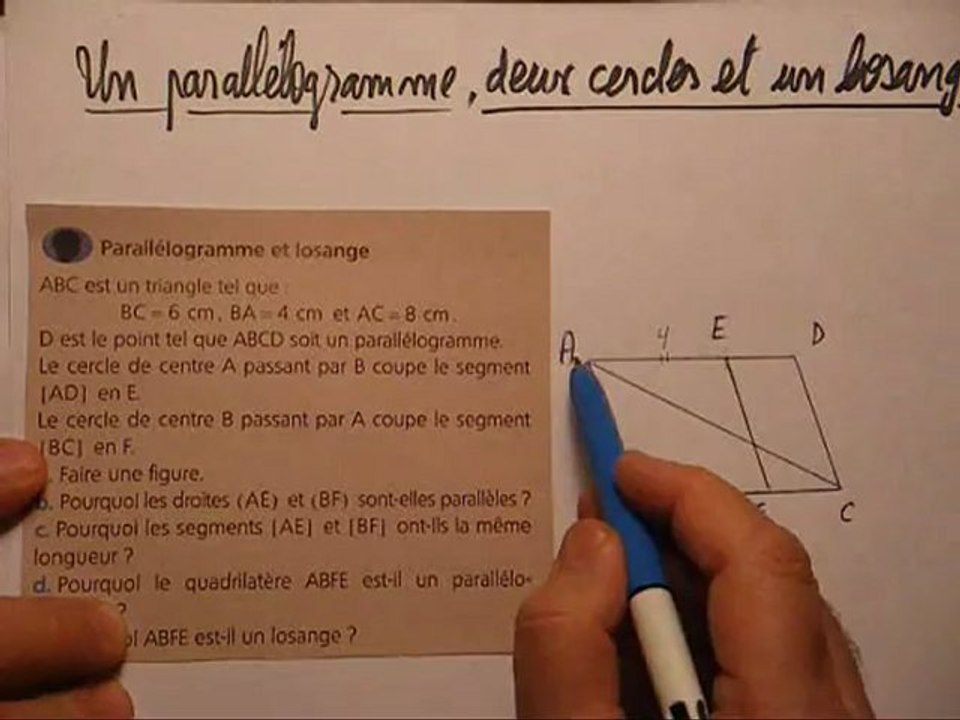 Un parallélogramme, deux cercles et un losang
Parallélogramme et losange
ABC est un triangle tel que :
BC = 6 cm, BA = 4 cm et AC = 8 cm.
D est le point tel que ABCD soit un parallélogramme.
Le cercle de centre A passant par B coupe le segment
[AD] en E.
Le cercle de centre B passant par A coupe le segment
[BC] en F.
. Faire une figure.
b. Pourquoi les droites (AE) et (BF) sont-elles parallèles ?
c. Pourquoi les segments [AE] et [BF] ont-ils la même
longueur ?
d. Pourquoi le quadrilatère ABFE est-il un parallélo-
?
ABFE est-il un losange ?
A 4 E D
C